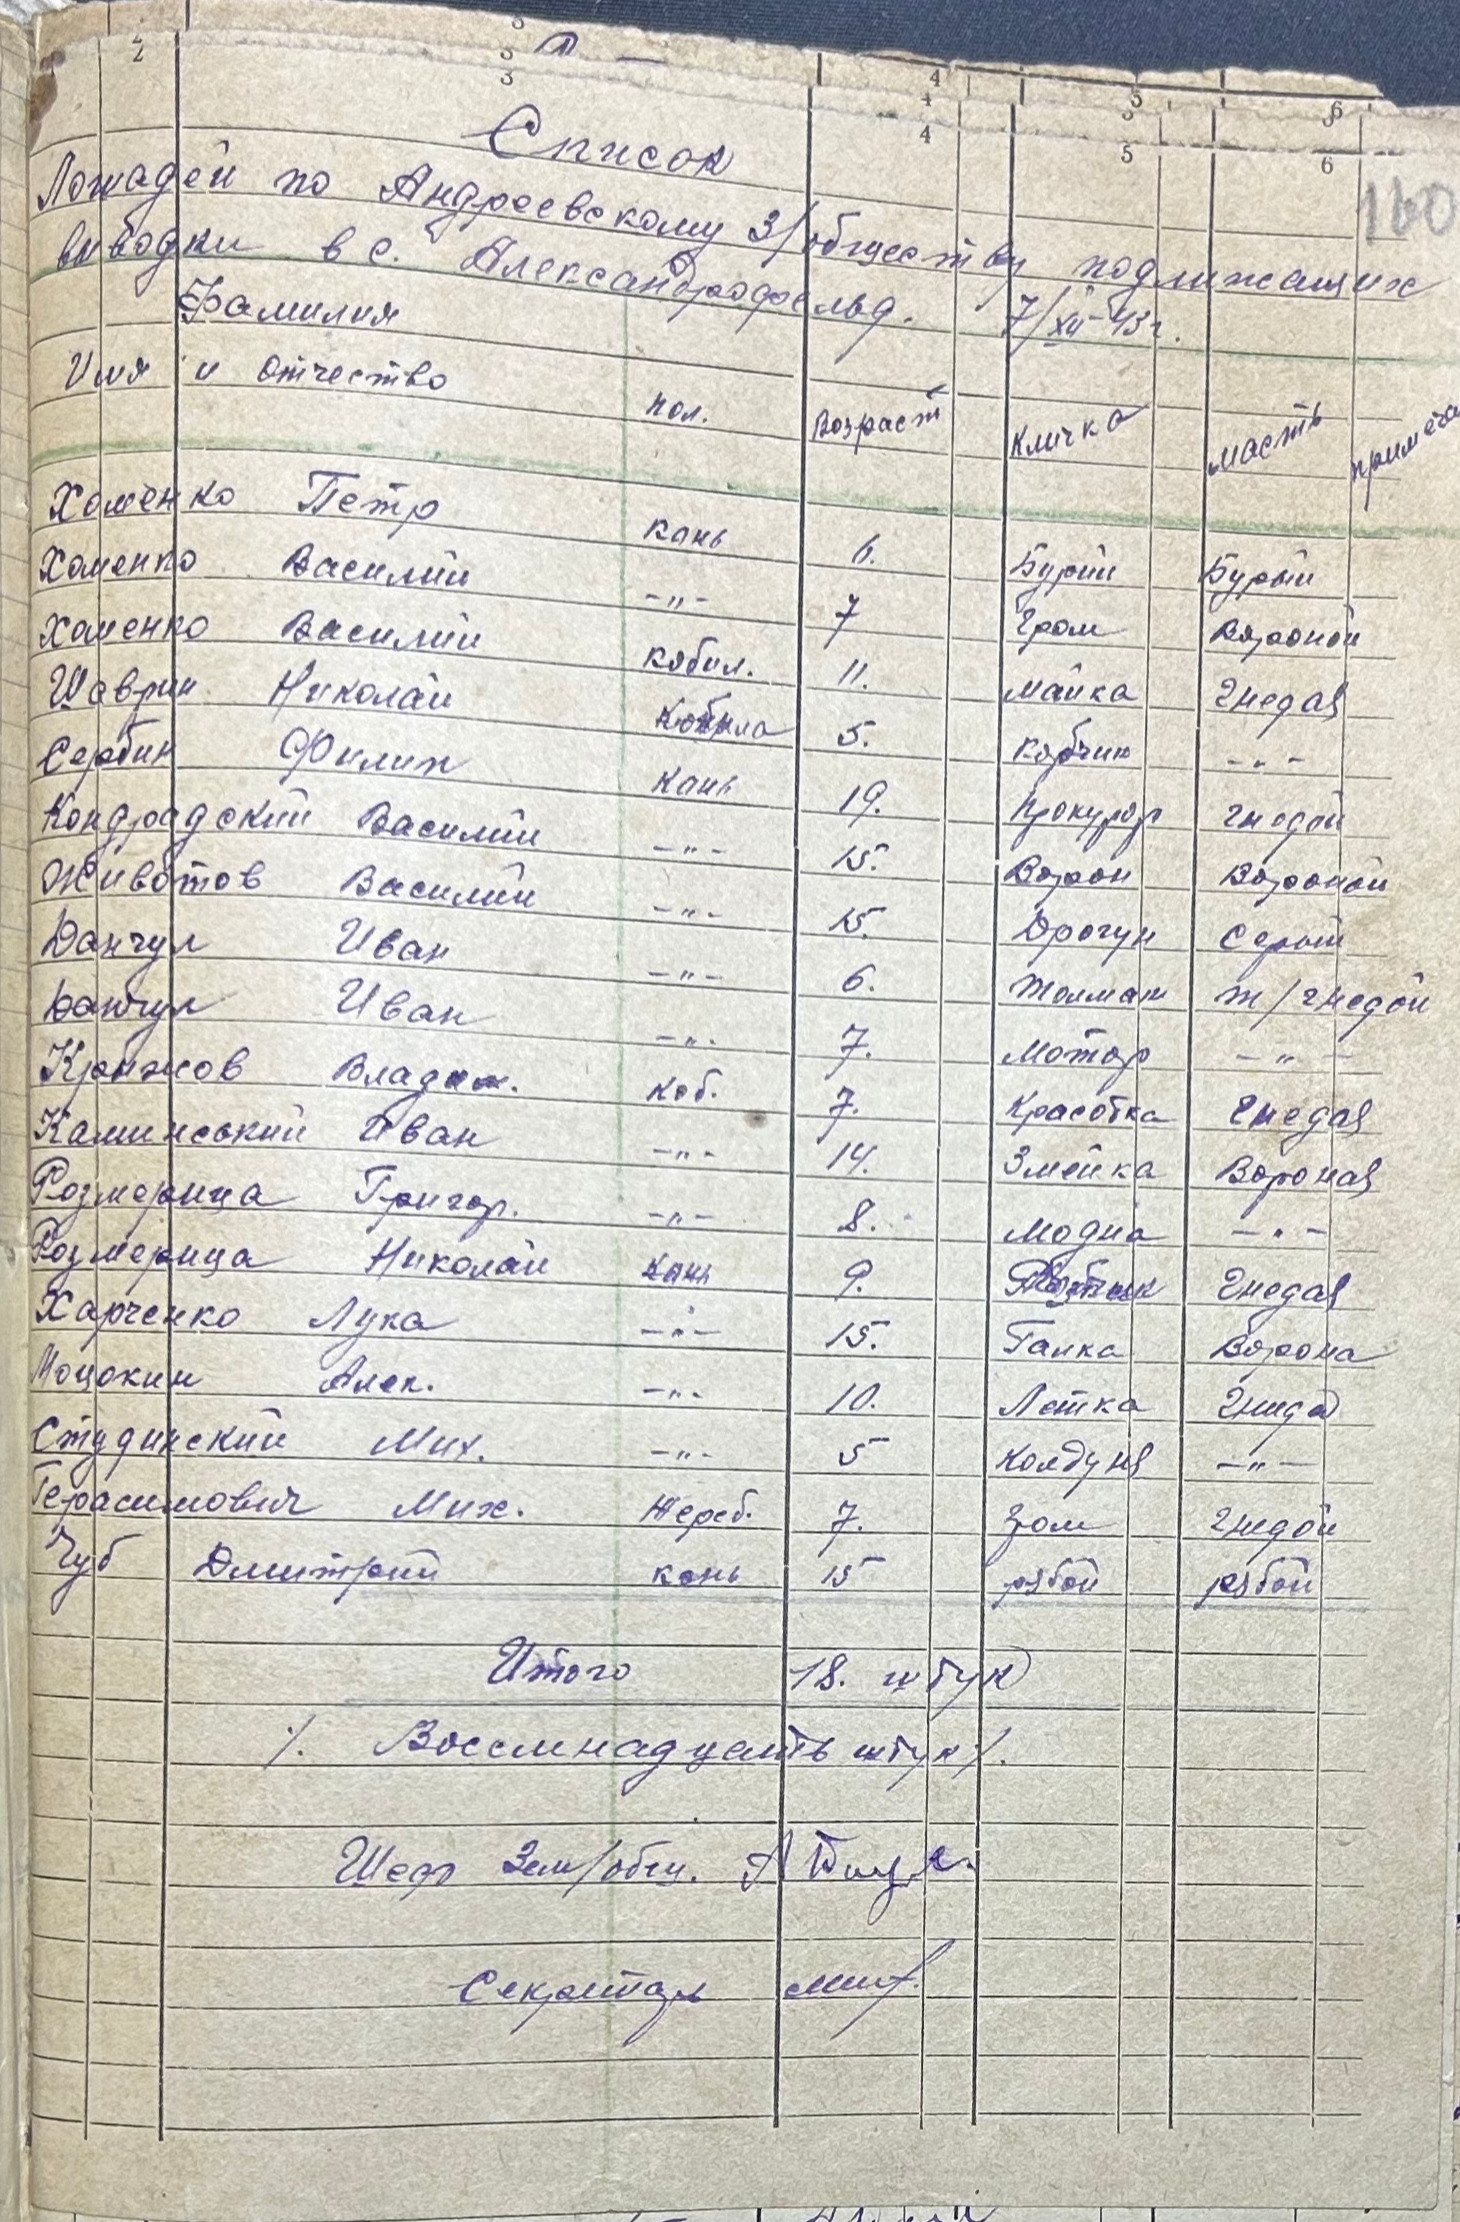 2 3 4 5 6
3 4 5 6
160
Список
Лошадей по Андреевскому З/обществу подлижащих
выводки в с. Александрофельд. 7/XII-43 г.
Фамилия
Имя и отчество пол. Возраст Кличка масть примеча
Хоменко Петр кань 6. Бурий Бурый
Хоменко Василий -„- 7 Гром Вороной
Хоменко Василий кобил. 11. Майка гнедая
Шаврин Николай Кобыла 5. Кобчик -„-
Сербин Филип кань 19. Прокурор гнедой
Кондрадский Василий -„- 15. Ворон Вороной
Животов Василий -„- 15. Дрогун Серый
Данчул Иван -„- 6. Толмаш т/гнедой
Данчул Иван -„- 7. Мотор -„-
Крыжов Влад. коб. 7. Красотка гнедая
Каминський Иван -„- 14. Змейка Вороная
Розмерица Григор. -„- 8. Модна -„-
Розмерица Николай Кань 9. гнедая
Харченко Лука -„- 15. Галка Ворона
Моцокин Алек. -„- 10. Летка гнида
Студинский Мих. -„- 5 Колдуня -„-
Герасимович Мих. жереб. 7. Гром гнедой
Чуб Дмитрий конь 15 рябой рябой
Итого 18. штук
/. Восемнадцать штук /.
Шеф Зем/общ.
Секретарь